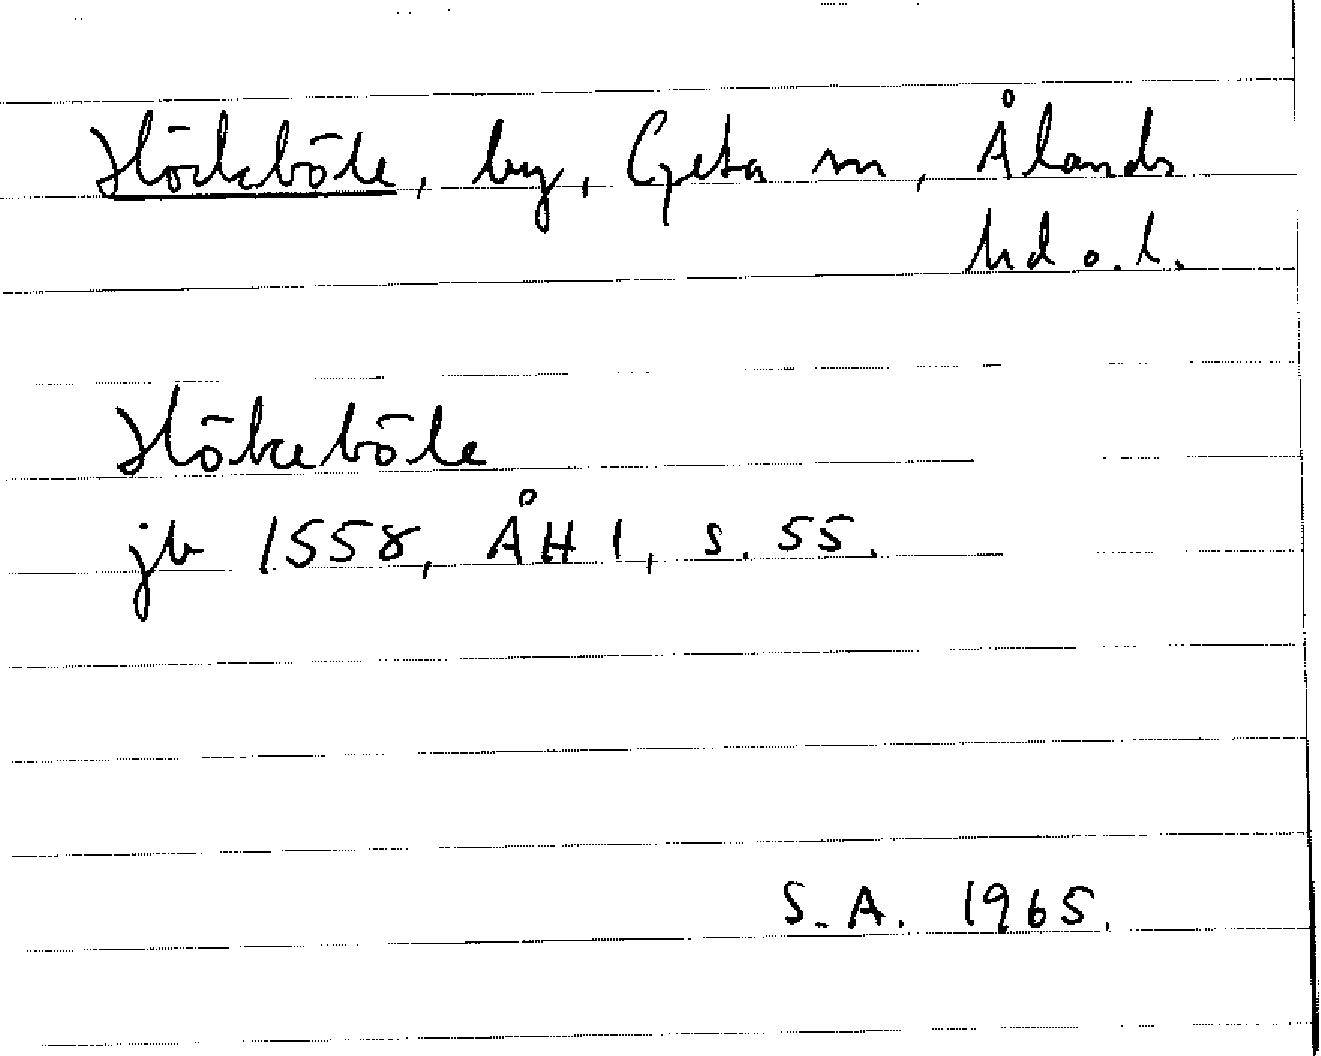 Höckböle, by, Geta sn, Ålands
hd o. l.
Hökeböle
jb 1558, ÅH 1, s. 55.
S.A. 1965.